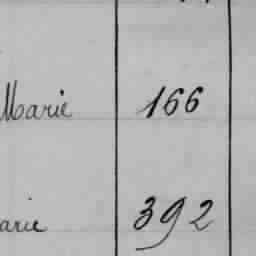 Marie 166
arie 392